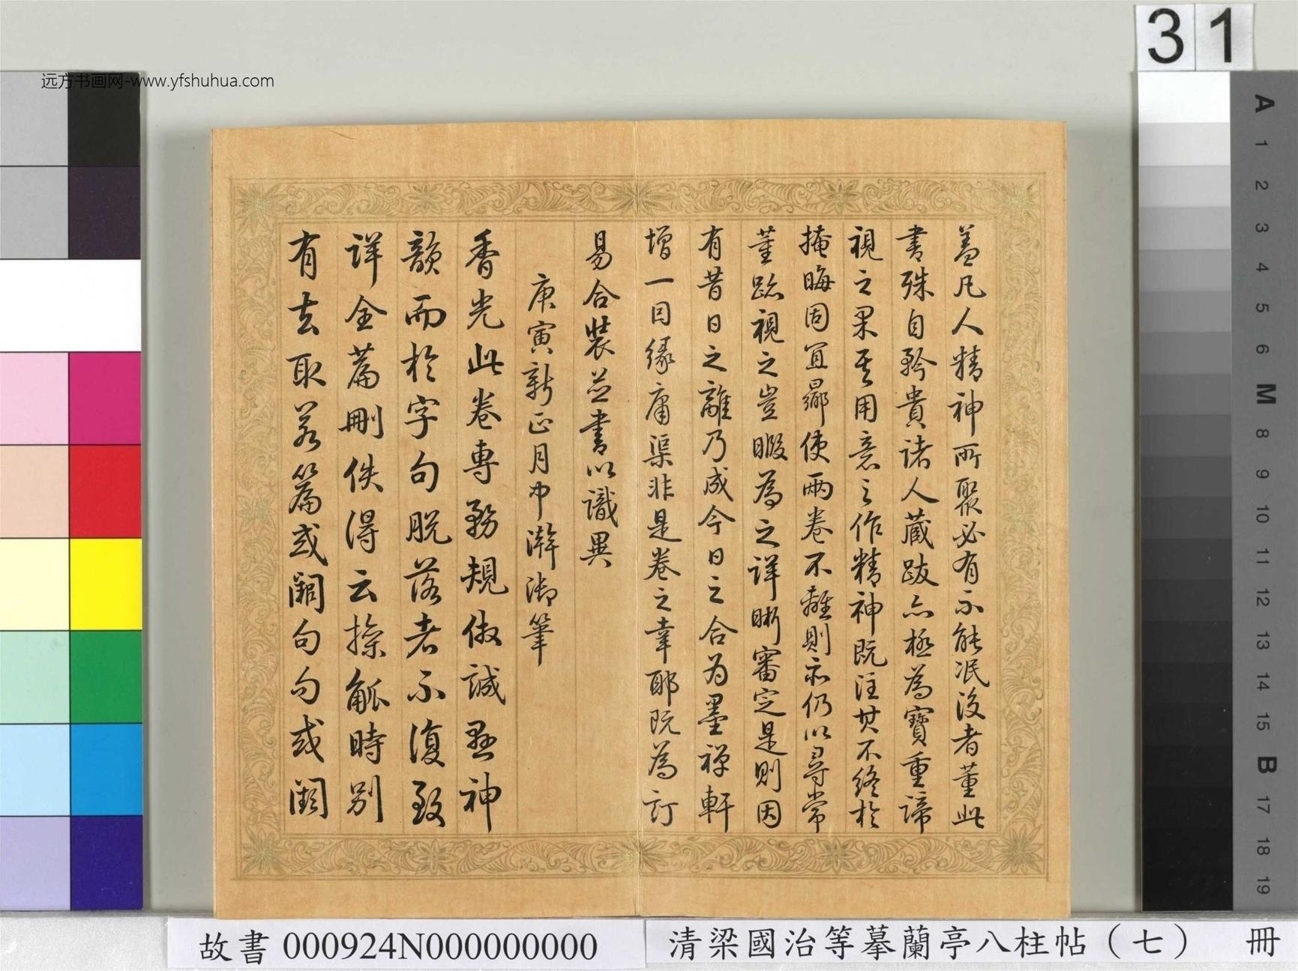 31
远方书画网-www.yfshuhua.com
A
1
2
3
4
5
6
M
8
9
10
11
12
13
14
15
B
17
18
19
蓋凡人精神所聚必有不能泯沒者董此
書殊自矜貴諸人藏跋亦極為寶重諦
視之果其用意之作精神既注其不終於
掩晦固宜曏使兩卷不離則亦仍以尋常
董跡視之豈暇為之詳晰審定是則因
有昔日之離乃成今日之合為墨禪軒
增一因緣庸渠非是卷之幸耶既為訂
易合裝並書以識異
庚寅新正月中澣御筆
香光此卷專務規倣誠懸神
韻而於字句脫落者不復致
詳全篇刪佚得云操觚時別
有去取若篇或闕句句或闕
故書 000924N000000000
清梁國治等摹蘭亭八柱帖（七） 冊